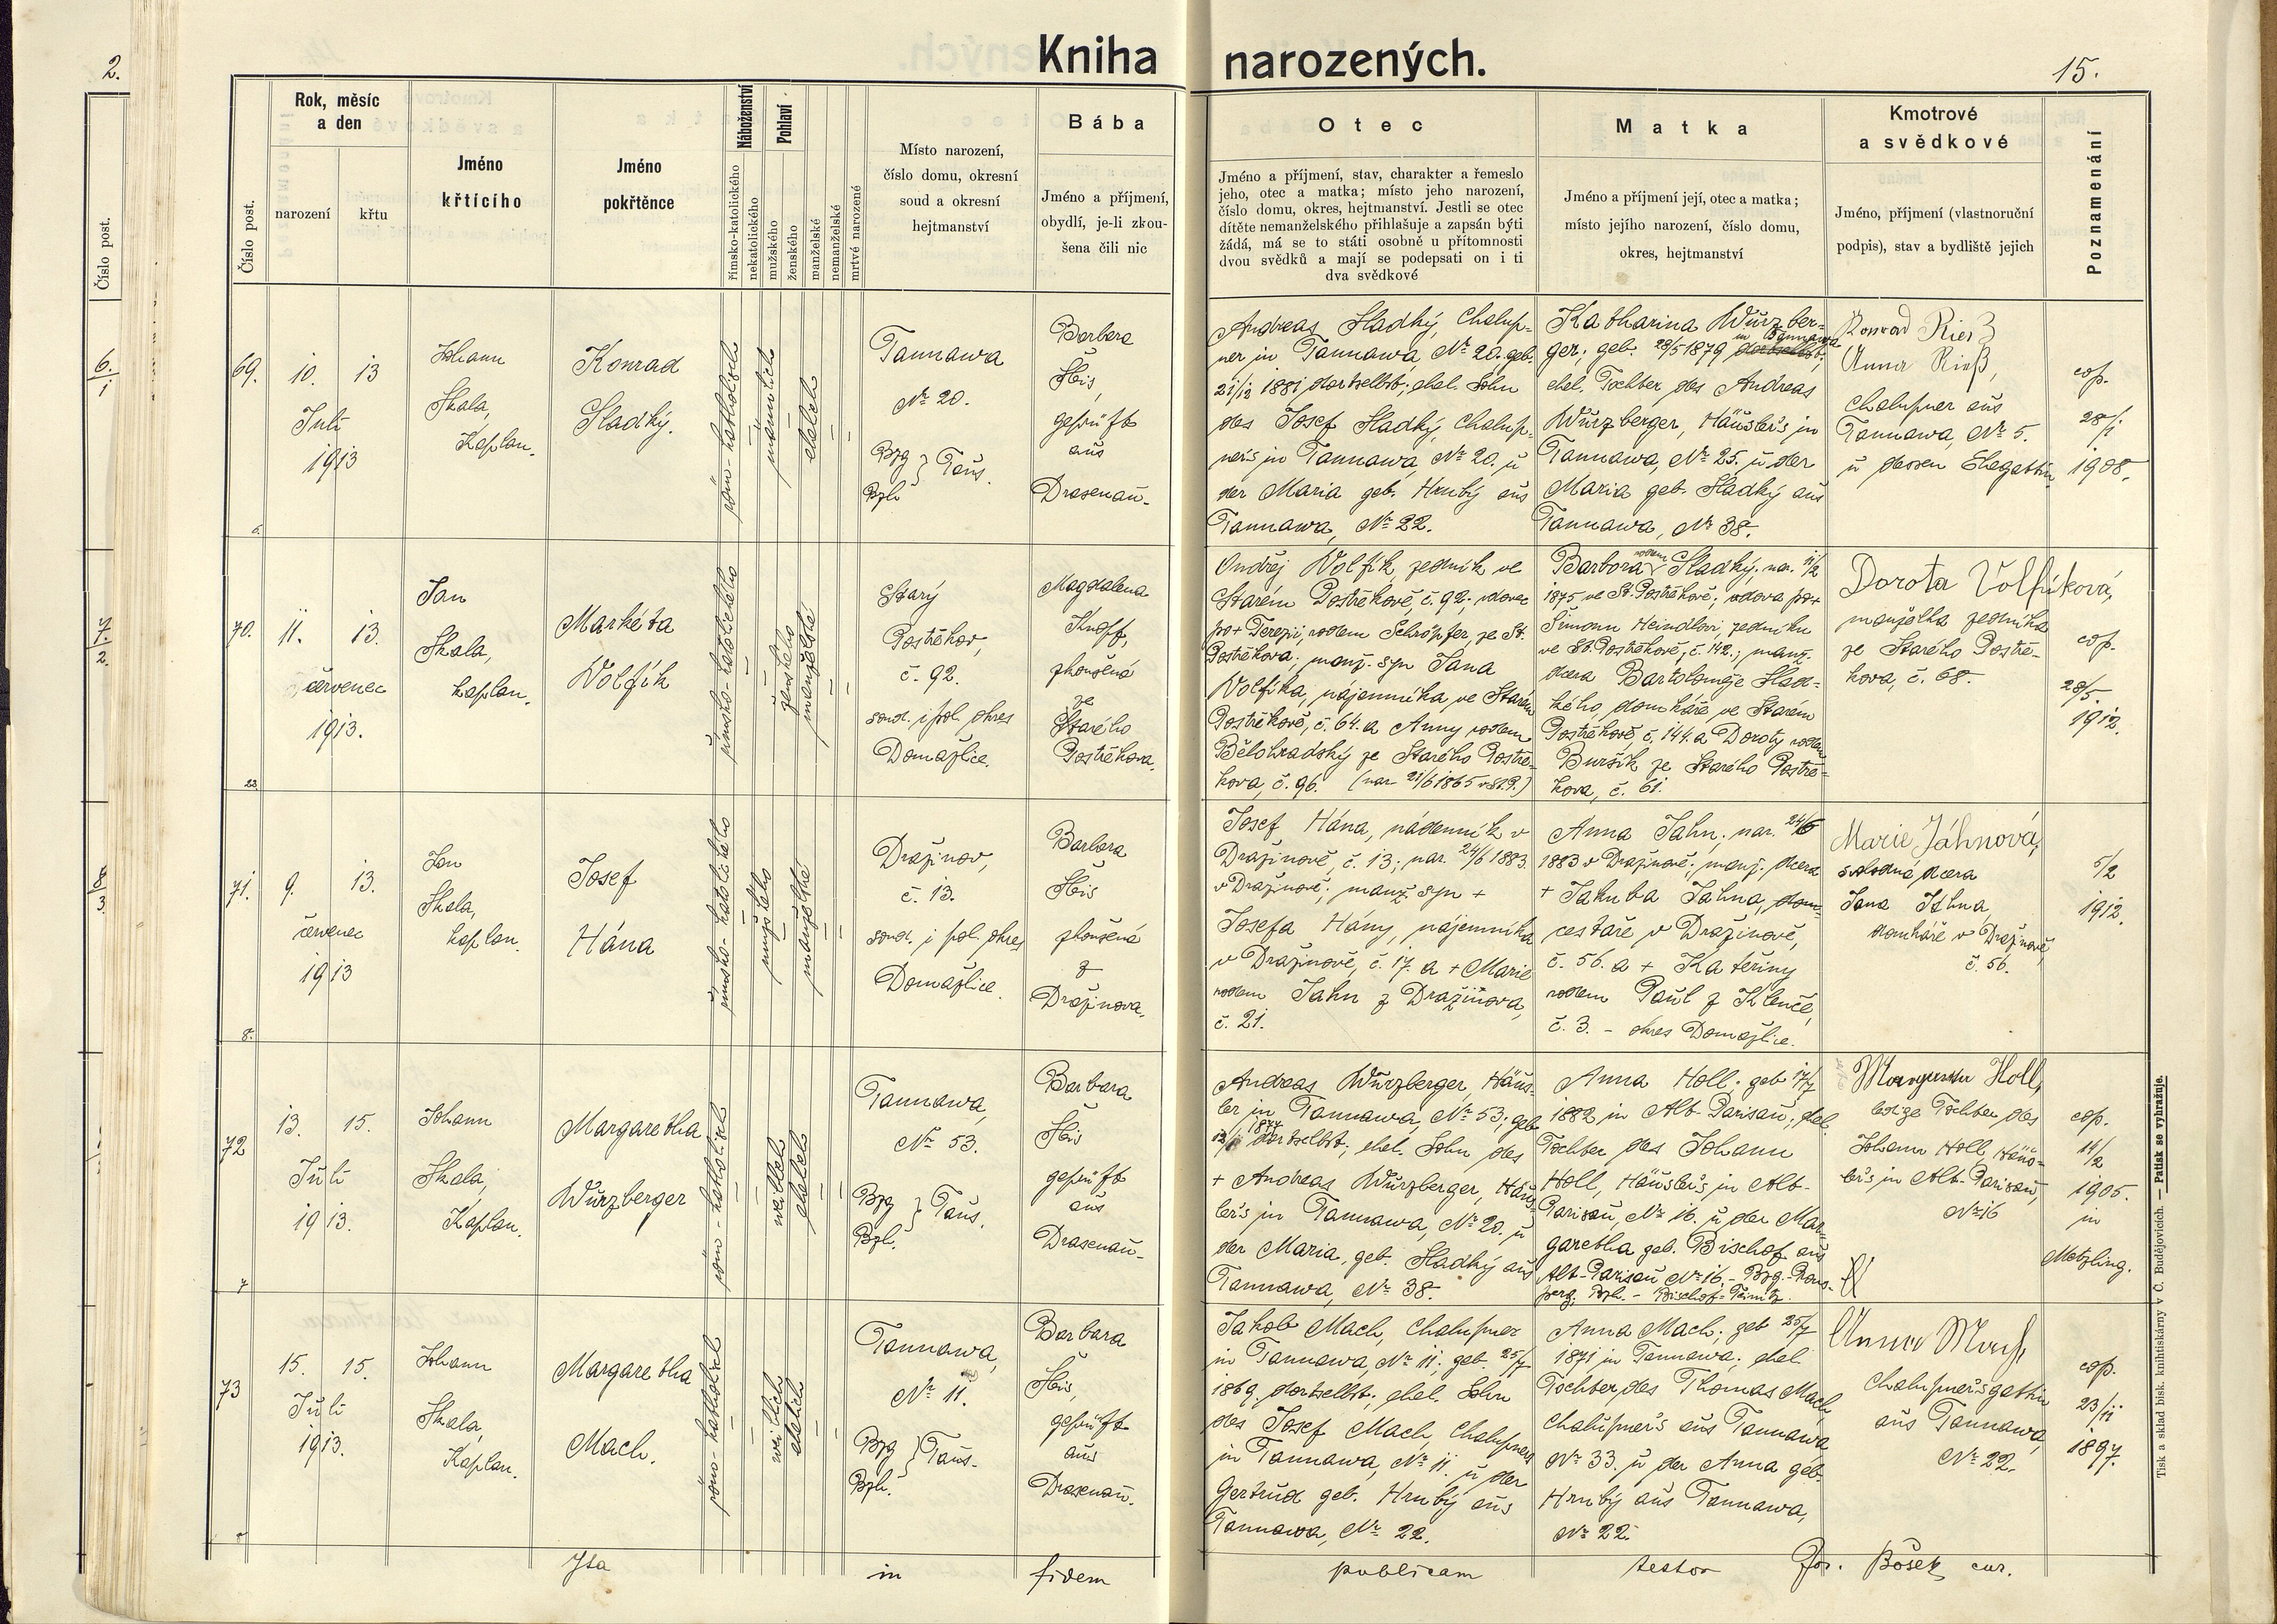 2.
Číslo post.
6./1
7./2.
8/3
Kniha narozených.
15.
Číslo post.
Rok, měsíc
a den
narození
křtu
Jméno
křtícího
Jméno
pokřtěnce
Náboženství
římsko-katolického
nekatolického
Pohlaví
mužského
ženského
manželské
nemanželské
mrtvě narozené
Místo narození,
číslo domu, okresní
soud a okresní
hejtmanství
Bába
Jméno a příjmení,
obydlí, je-li zkou-
šena čili nic
Otec
Jméno a příjmení, stav, charakter a řemeslo
jeho, otec a matka; místo jeho narození,
číslo domu, okres, hejtmanství. Jestli se otec
dítěte nemanželského přihlašuje a zapsán býti
žádá, má se to státi osobně u přítomnosti
dvou svědků a mají se podepsati on i ti
dva svědkové
Matka
Jméno a příjmení její, otec a matka;
místo jejího narození, číslo domu,
okres, hejtmanství
Kmotrové
a svědkové
Jméno, příjmení (vlastnoruční
podpis), stav a bydliště jejich
Poznamenání
69.
10. 13
Juli
1913
Johann
Skala,
Kaplan.
Konrad
Sladký.
röm-katholisch
männlich
ehelich
Tannawa
No 20.
Bzg
Bzh. } Taus.
Barbara
geprüft
aus
Drasenau.
Andreas Sladký, Chalup-
ner in Tannawa, No 20. geb.
21/12 1881 dortselbst; ehel. Sohn
des Josef Sladký, Chalup-
ners in Tannawa, No 20. u
der Maria geb. Hrubý aus
Tannawa, No 22.
Katharina Würzber-
ger; geb. 28/5 1879 in Tannawa
ehel. Tochter des Andreas
Würzberger, Häuslers in
Tannawa, No 25. u der
Maria geb. Sladký aus
Tannawa, No 38.
Konrad Rieß
Anna Rieß,
Chalupner aus
Tannawa, No 5.
u dessen Ehegattin
cop.
28/1
1908.
6.
70.
11. 13.
červenec
1913.
Jan
Skala,
kaplan.
Markéta
Wolfík
římsko-katolického
ženského
manželské
Starý
Postřekov,
č. 92.
soud. i pol. okres
Domažlice.
Magdalena
Knopf,
zkoušená
ze
Starého
Postřekova.
Ondřej Wolfík, zedník ve
Starém Postřekově, č. 92; vdovec
po + Terezii, rodem Schröpfer, ze St.
Postřekova; manž. syn Jana
Wolfíka, nájemníka, ve Starém
Postřekově, č. 64. a Anny rodem
Bělohradský ze Starého Postře-
kova, č. 96. (nar 21/6 1865 v St.P.)
Barbora rodem Sladký, nar. 11/2
1875 ve St. Postřekově; vdova po +
Šimonu Heindlovi, zedníku
ve St. Postřekově, č. 142.; manž.
dcera Bartoloměje Slad-
kého, domkáře ve Starém
Postřekově, č. 144. a Doroty rodem
Buršík ze Starého Postře-
kova, č. 61.
Dorota Volfíková,
manželka zedníka
ze Starého Postře-
kova, č. 68.
cop.
28/5.
1912.
23
71.
9. 13.
červenec
1913
Jan
Skala,
kaplan.
Josef
Hána
římsko-katolického
mužského
manželské
Dražinov,
č. 13.
soud. i pol. okres
Domažlice.
Barbara
zkoušená
z
Dražinova.
Josef Hána, nádenník v
Dražinově, č. 13; nar. 24/6 1883
v Dražinově; manž. syn +
Josefa Hány, nájemníka
v Dražinově, č. 17. a + Marie
rodem Jahn z Dražinova,
č. 21.
Anna Jahn, nar. 24/6
1883 v Dražinově; manž. dcera
+ Jakuba Jahna, dom-
cestáře v Dražinově,
č. 56. a + Kateřiny
rodem Paul z Klenče,
č. 3. - okres Domažlice.
Marie Jáhnová,
svobodná dcera
Jana Jáhna,
domkáře v Dražinově,
č. 56.
5/2
1912.
8.
72
13. 15.
Juli
1913.
Johann
Skala,
Kaplan.
Margaretha
Würzberger
röm-katholisch
weiblich
ehelich
Tannawa,
No 53.
Bzg
Bzh. } Taus.
Barbara
geprüft
aus
Drasenau.
Andreas Würzberger, Häus-
ler in Tannawa, No 53; geb
1877 dortselbst; ehel. Sohn des
+ Andreas Würzberger, Häus-
lers in Tannawa, No 20. u
der Maria, geb. Sladký aus
Tannawa, No 38.
Anna Holl; geb 17/7
1882 in Alt-Parisau; ehel.
Tochter des Johann
Holl, Häuslers in Alt-
Parisau, No 16. u der Mar-
garetha geb. Bischof aus
Alt-Parisau No 16. - Bzg. Rons-
perg. Bzh. - Bischof-Teinitz.
Margareta Holl,
ledige Tochter des
Johann Holl, Häus-
lers in Alt-Parisau,
No 16
cop.
14/2
1905.
in
Metzling.
7
73
15. 15.
Juli
1913.
Johann
Skala,
Kaplan.
Margaretha
Mach.
röm-katholisch
weiblich
ehelich
Tannawa,
No 11.
Bzg
Bzh. } Taus.
Barbara
geprüft
aus
Drasenau.
Jakob Mach, Chalupner
in Tannawa, No 11. geb. 25/7
1869. dortselbst; ehel. Sohn
des Josef Mach, Chalupners
in Tannawa, No 11. u der
Gertrud geb. Hrubý aus
Tannawa, No 22.
Anna Mach; geb 25/7
1871 in Tannawa; ehel.
Tochter des Thomas Mach
Chalupner's aus Tannawa
No 33. u der Anna geb.
Hrubý aus Tannawa,
No 22.
Anna Mach
Chalupnersgattin
aus Tannawa,
No 22.
cop.
23/11
1897.
Ita in fidem publicam testor Jos. Bošek cur.
Tisk a sklad bisk. knihtiskárny v Č. Budějovicích. — Patisk se vyhražuje.